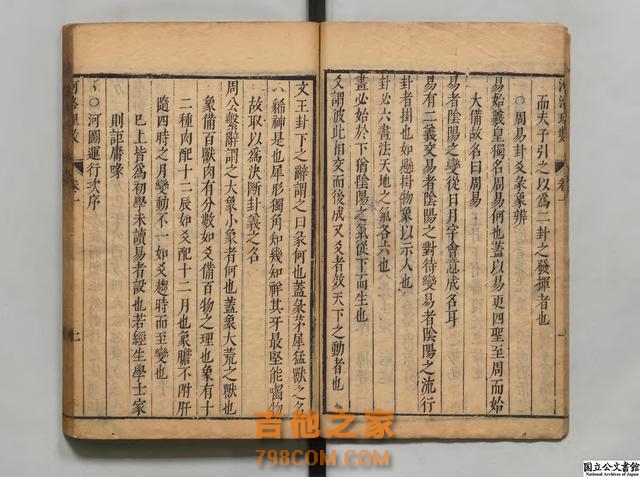 河洛理數 卷一
而夫子引之以爲二卦之發揮者也
○周易卦爻彖象辨
易始羲皇獨名周易何也蓋以易更四聖至周而始
大備故名曰周易
易者陰陽之變從日月字會意成名耳
易有二義交易者陰陽之對待變易者陰陽之流行
卦者掛也如懸掛物象以示人也
卦必六畫法天地之氣各六也
畫必始於下猶陰陽之氣從下而生也
爻謂彼此相交而後成又爻者效天下之動者也
文王卦下之辭謂之曰彖何也蓋彖茅犀猛獸之名
豨神是也犀形獨角知幾知祥其牙最堅能嚙物
故取以爲決斷卦義之名
周公繫辭謂之大象小象者何也蓋象大荒之獸也
象備百獸肉有分數如爻備百物之理也象有十
二種肉配十二辰如爻配十二月也象膽不附肝
隨四時之月變動不一如爻趨時而至變也
已上皆爲初學未讀易者設也若經生學士家
則詎庸喙
○河圖運行次序
河洛理數 卷一
吉他之家
798COM.COM
国立公文書館
National Archives of Japan